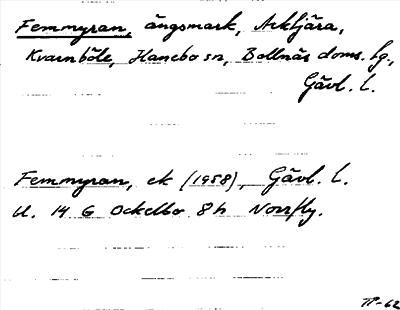 Femmyran, ängsmark, Arktjära,
Kvarnböle, Hanebo sn, Bollnäs doms. hg.,
Gävl. l.
Femmyran, ek (1958), Gävl. l.
U. 14 G Ockelbo 8h Norrfly.
-62